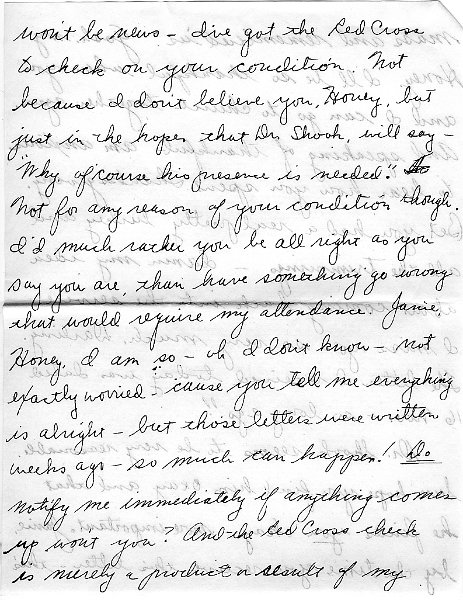 won't be news - I've got the Red Cross
to check on your condition. Not
because I don't believe you, Honey, but
just in the hopes that Dr. Shook, will say -
"Why, of course his presence is needed."
Not for any reason of your condition though.
I'd much rather you be all right as you
say you are, than have something go wrong
that would require my attendance. Janie,
Honey, I am so - oh I don't know - not
exactly worried - 'cause you tell me everything
is alright - but those letters were written
weeks ago - so much can happen! Do
notify me immediately if anything comes
up wont you? And the Red Cross check
is merely a product or result of my